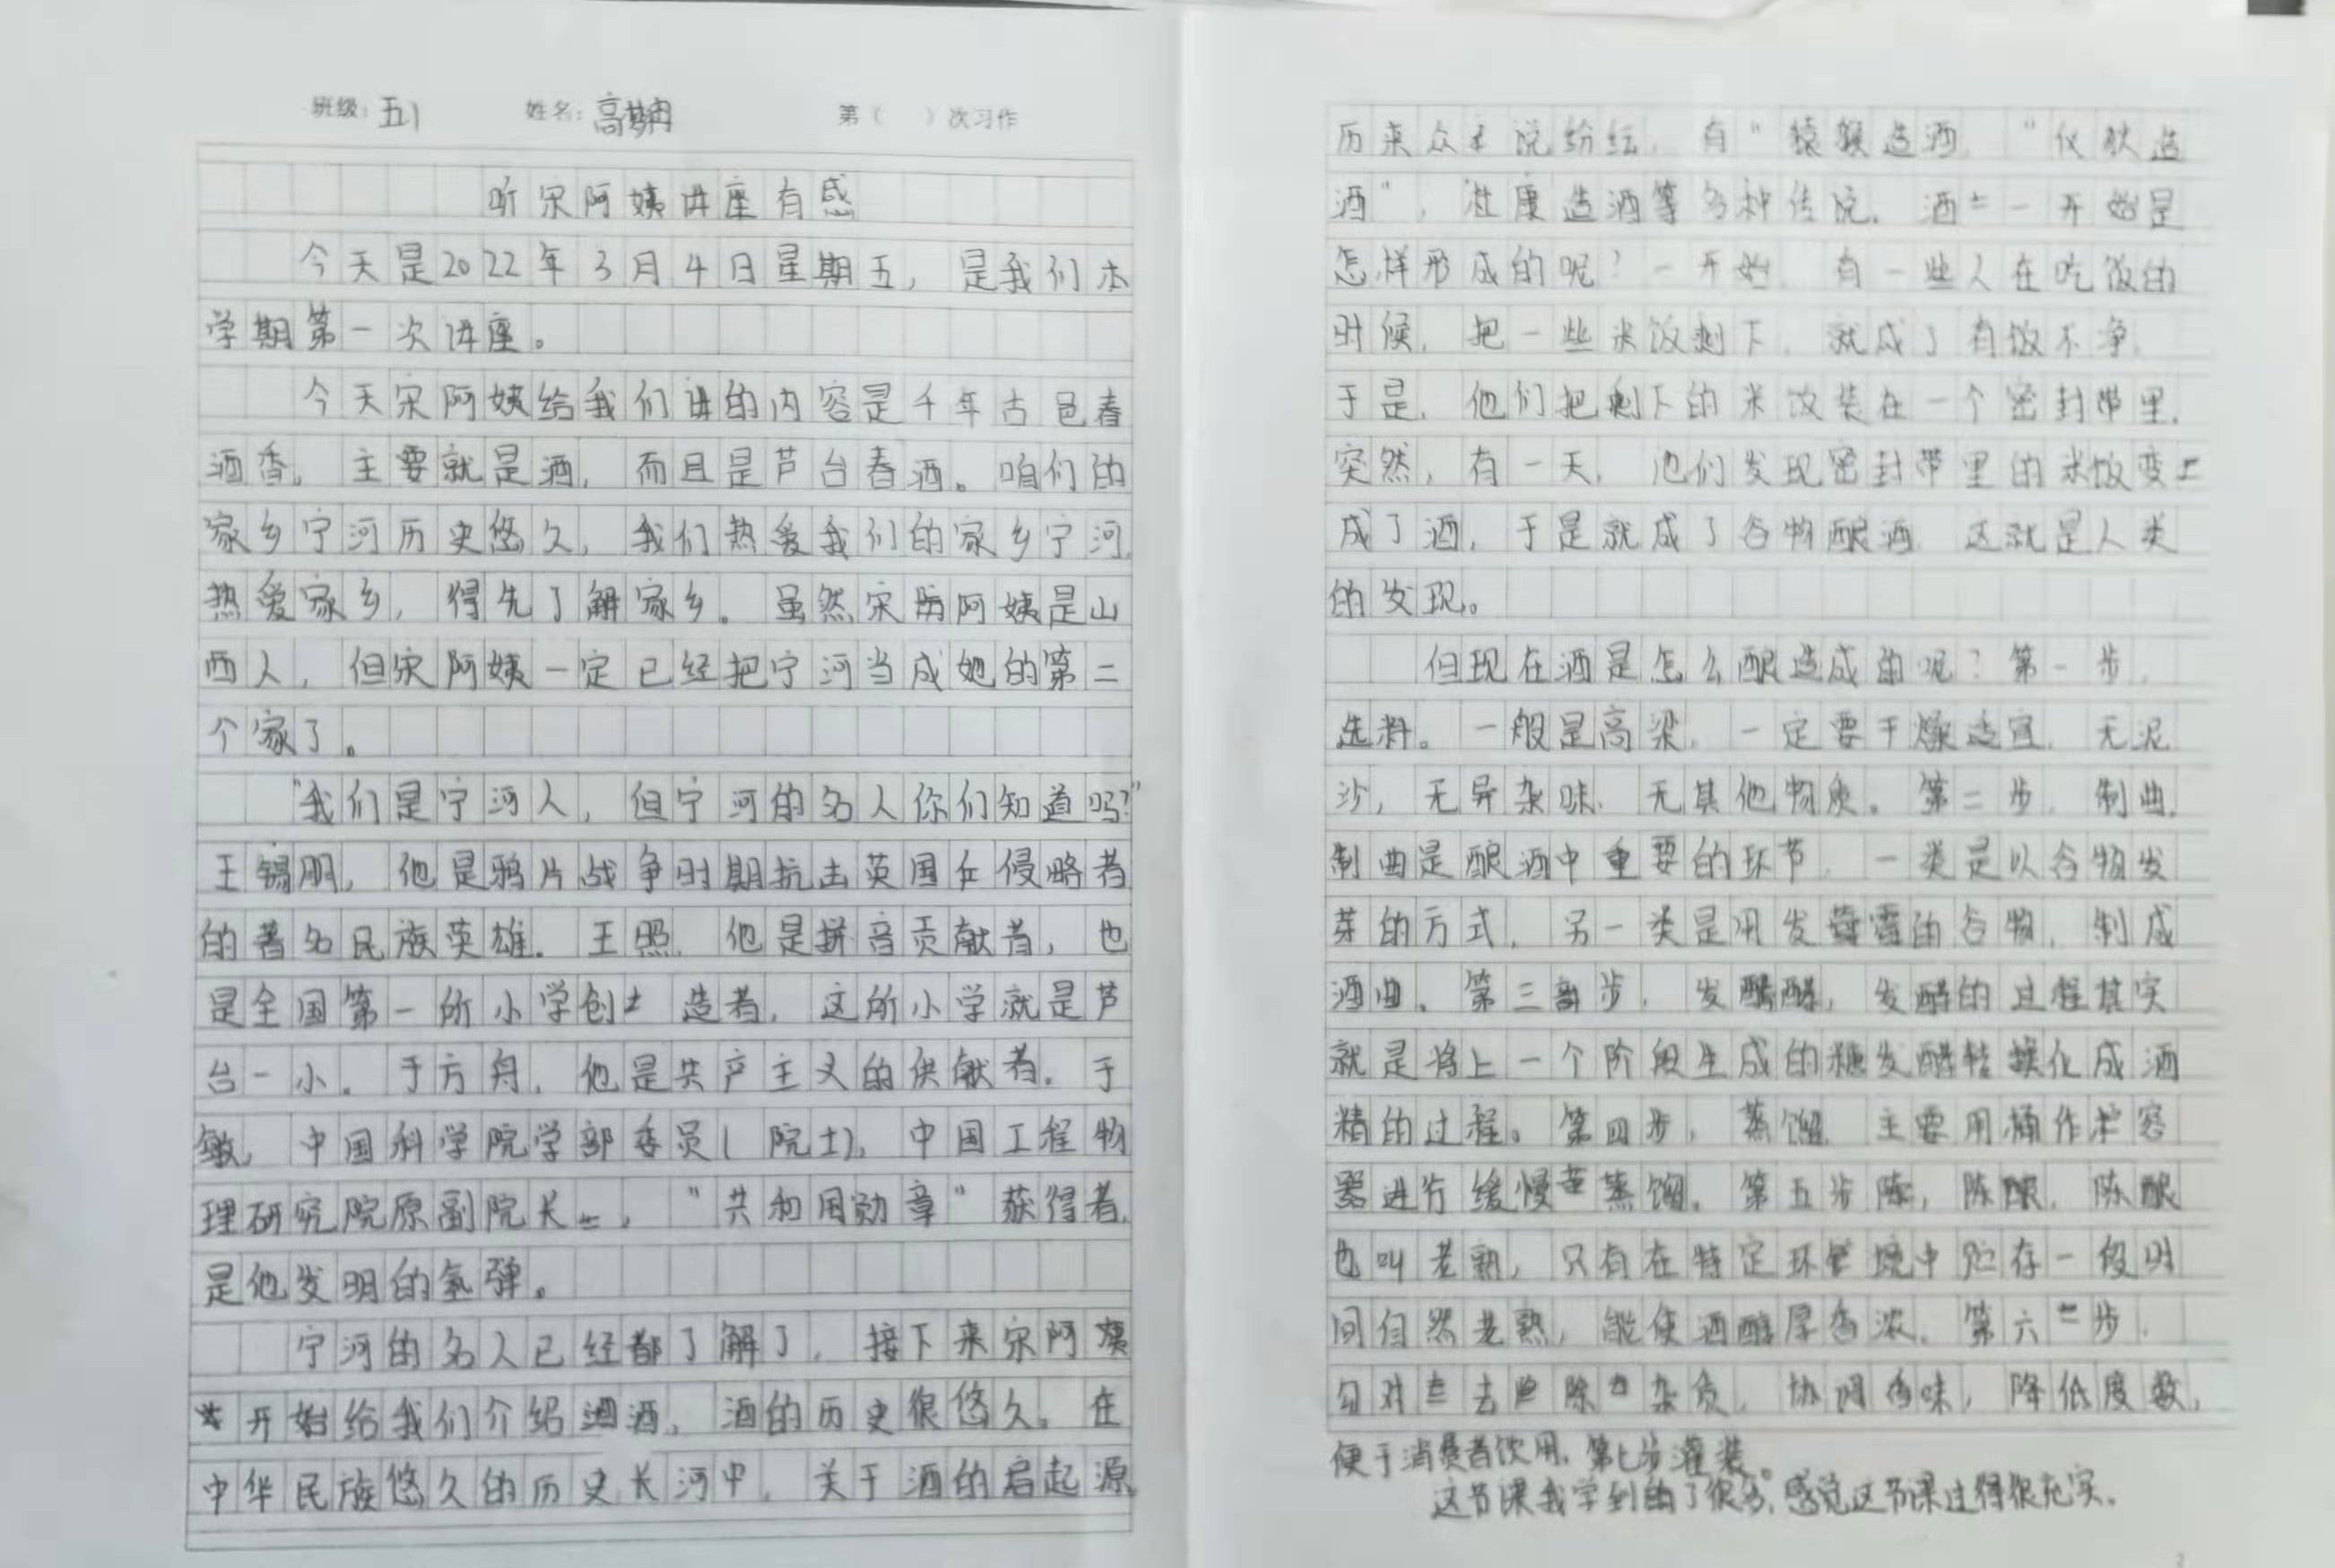 班级：五1 姓名：高 第（ ）次习作
听宋阿姨讲座有感
今天是2022年3月4日星期五，是我们本
学期第一次讲座。
今天宋阿姨给我们讲的内容是千年古邑春
酒香。主要就是酒，而且是芦台春酒。咱们的
家乡宁河历史悠久，我们热爱我们的家乡宁河，
热爱家乡，得先了解家乡。虽然宋阿姨是山
西人，但宋阿姨一定已经把宁河当成她的第二
个家了。
“我们是宁河人，但宁河的名人你们知道吗？”
王锡朋，他是鸦片战争时期抗击英国侵略者
的著名民族英雄。王照，他是拼音贡献者，也
是全国第一所小学创造者，这所小学就是芦
台一小。于方舟，他是共产主义的供献者。于
敏，中国科学院学部委员（院士），中国工程物
理研究院原副院长，“共和国勋章”获得者，
是他发明的氢弹。
宁河的名人已经都了解了，接下来宋阿姨
开始给我们介绍酒，酒的历史很悠久。在
中华民族悠久的历史长河中，关于酒的起源
历来众说纷纭，有“猿猴造酒，“仪狄造
酒”，杜康造酒等多种传说。酒一开始是
怎样形成的呢？一开始，有一些人在吃饭的
时候，把一些米饭剩下，就成了有饭不净，
于是，他们把剩下的米饭装在一个密封带里，
突然，有一天，他们发现密封带里的米饭变
成了酒，于是就成了谷物酿酒，这就是人类
的发现。
但现在酒是怎么酿造成的呢？第一步，
选料。一般是高梁，一定要干燥适宜，无泥
沙，无异杂味，无其他物质。第二步，制曲，
制曲是酿酒中重要的环节，一类是以谷物发
芽的方式，另一类是用发霉的谷物，制成
酒曲。第三步，发酵，发酵的过程其实
就是将上一个阶段生成的糖发酵转化成酒
精的过程。第四步，蒸馏，主要用桶作容
器进行缓慢蒸馏。第五步，陈酿，陈酿
也叫老熟，只有在特定环境中贮存一段时
间自然老熟，能使酒醇厚香浓。第六步，
勾对去除杂质，协调香味，降低度数，
便于消费者饮用，第七步灌装。
这节课我学到的了很多，感觉这节课过得很充实。